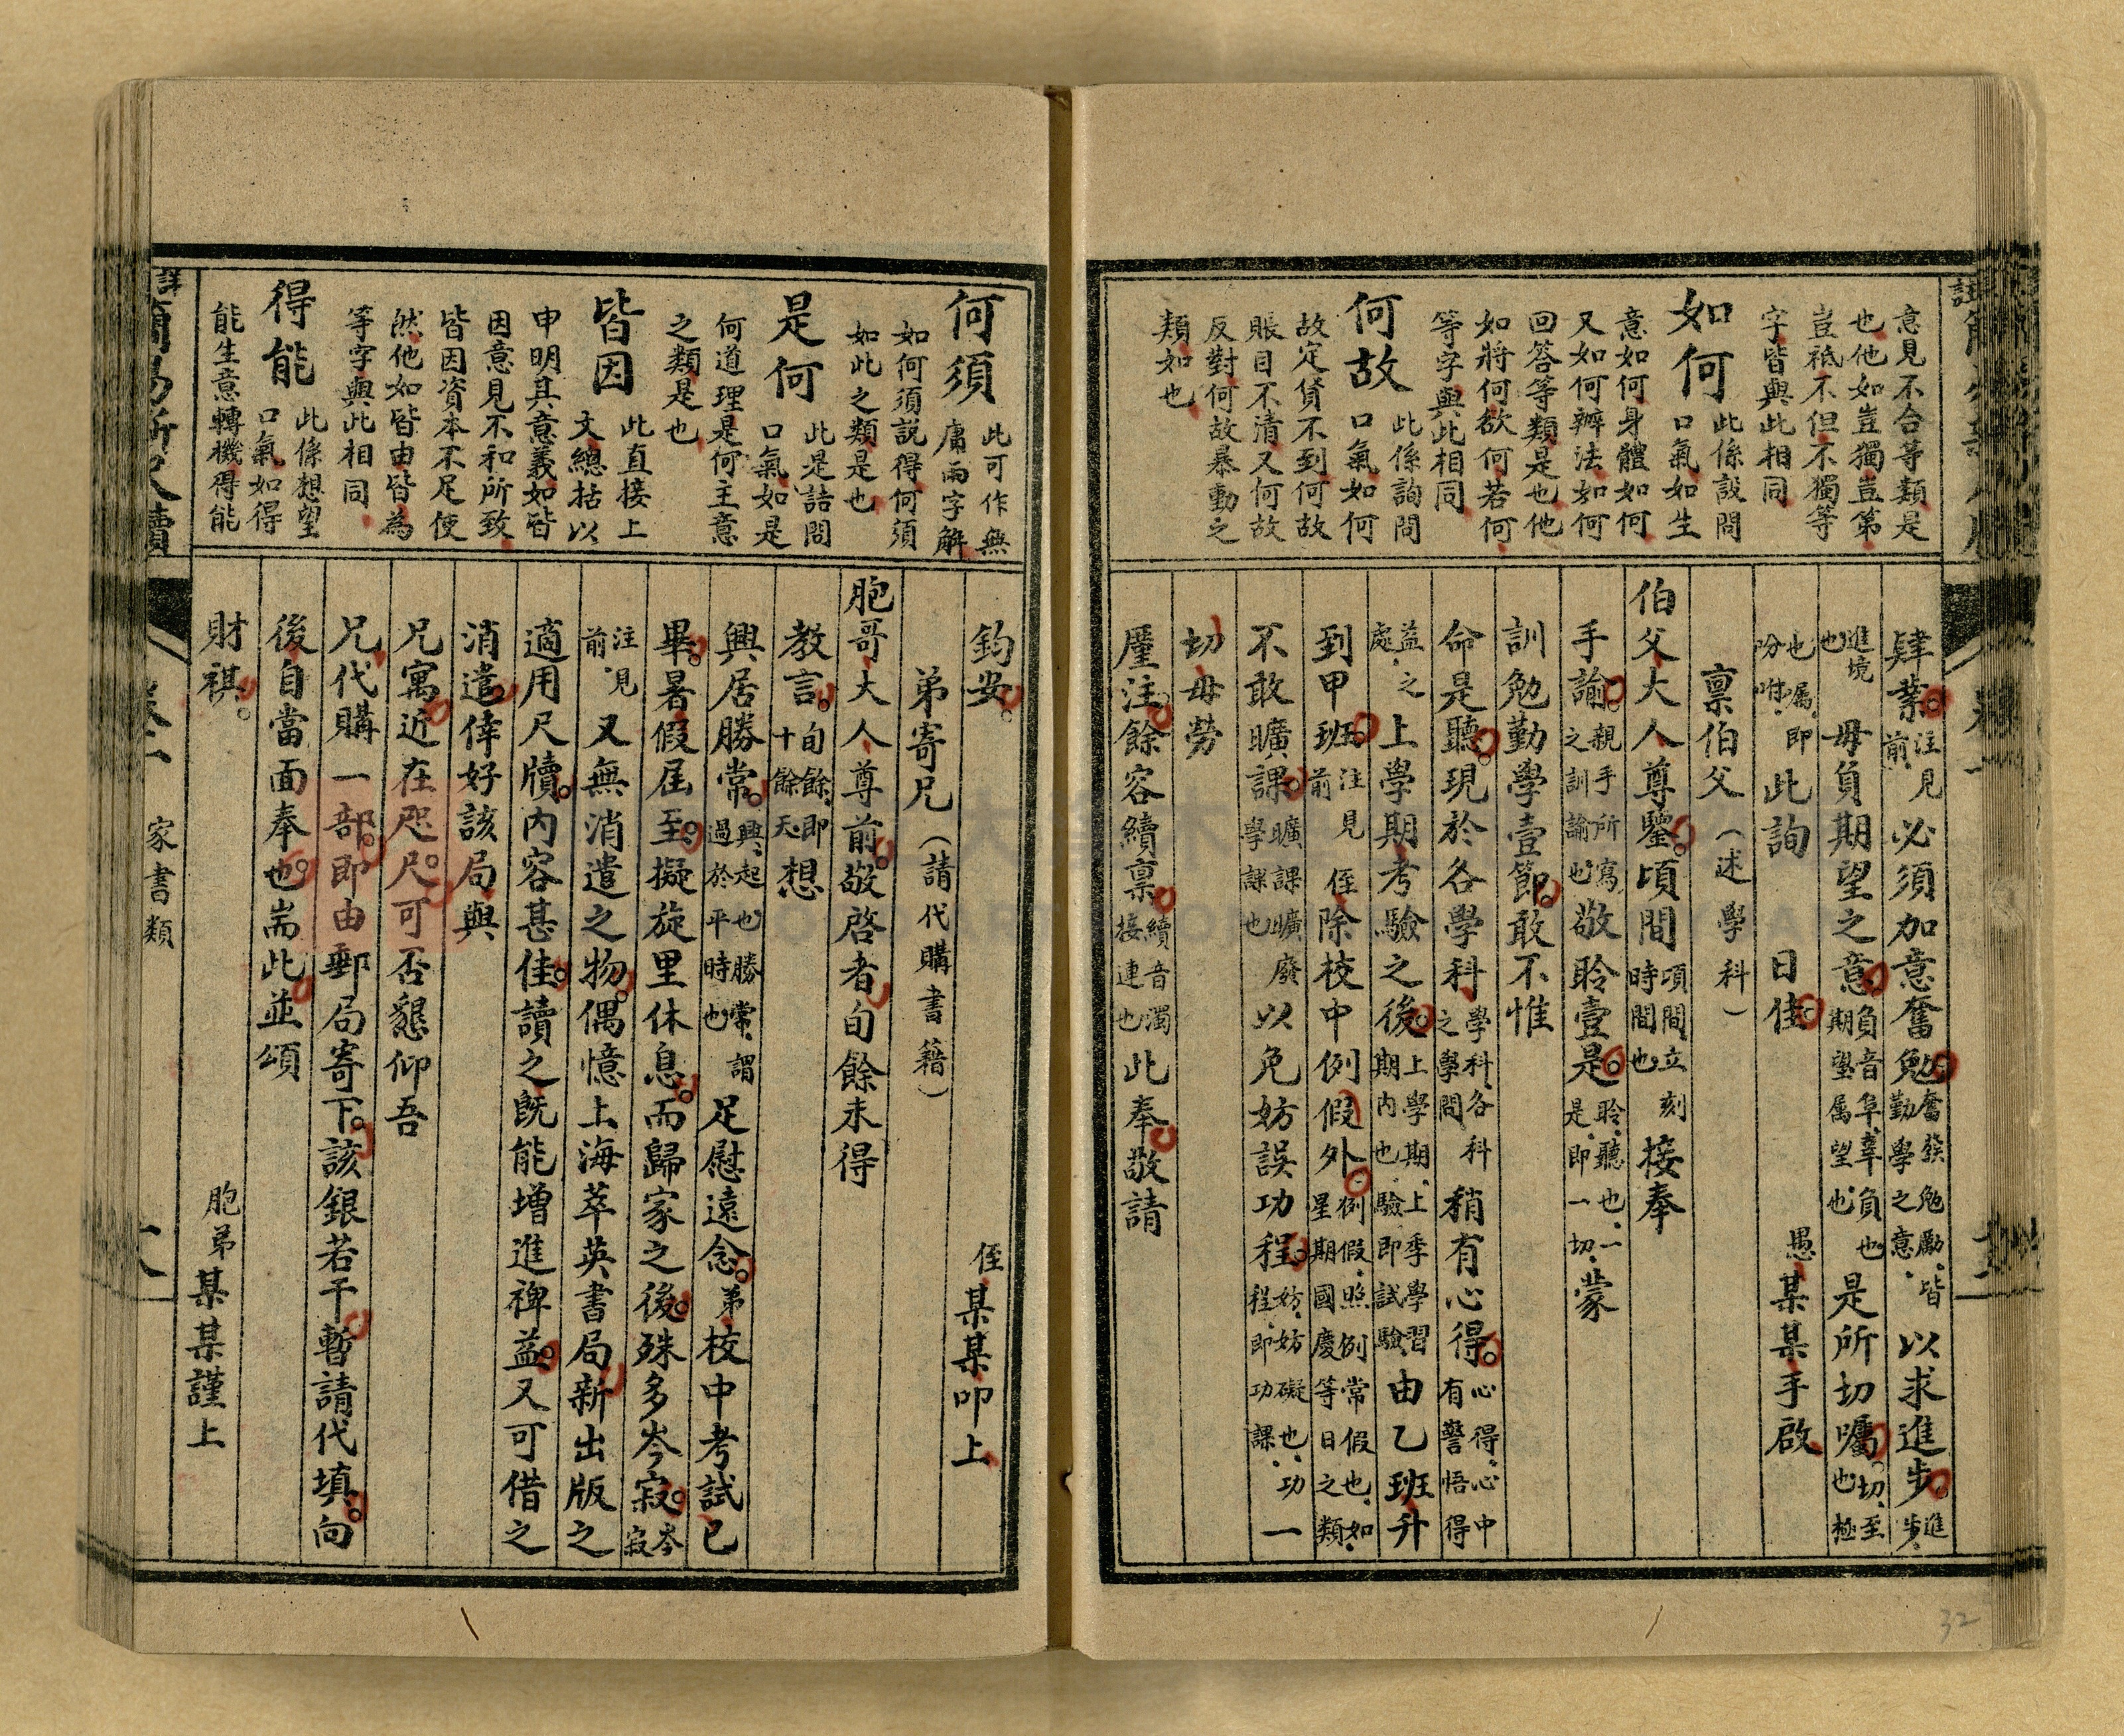 意見不合等類是
也他如豈獨豈第
豈祗不但不獨等
字皆與此相同
如何
此係設問
口氣如生
意如何身體如何
又如何辦法如何
回答等類是也他
如將何欲何若何
等字與此相同
何故
此係詢問
口氣如何
故定貨不到何故
賬目不清又何故
反對何故暴動之
類如也
肄業注見前必須加意奮勉奮發勉勵皆勤學之意以求進步進步
進境也毋負期望之意負音阜辜負也期望屬望也是所切囑切至也極
也囑即吩咐此詢 日佳 愚某某手啟
稟伯父(述學科)
伯父大人尊鑒頃間頃間立刻時間也接奉
手諭親手所寫之訓諭也敬聆壹是聆聽也一是即一切蒙
訓勉勤學壹節敢不惟
命是聽現於各學科學科各科之學問稍有心得心得心中有警悟得
益之處上學期考驗之後上學期上季學習期內也驗即試驗由乙班升
到甲班注見前侄除校中例假外例假照例常假也如星期國慶等日之類
不敢曠課曠課曠廢學課也以免妨誤功程妨妨礙也功程即功課一
切毋勞
廑注餘容續稟續音濁接連也此奉敬請
何須
此可作無
庸兩字解
如何須說得何須
如此之類是也
是何
此是詰問
口氣如是
何道理是何主意
之類是也
皆因
此直接上
文總括以
申明其意義如皆
因意見不和所致
皆因資本不足使
然他如皆由皆為
等字與此相同
得能
此係想望
口氣如得
能生意轉機得能
鈞安 侄某某叩上
弟寄兄(請代購書籍)
胞哥大人尊前敬啓者旬餘未得
教言旬餘即十餘天想
興居勝常興起也勝常謂過於平時也足慰遠念弟校中考試已
畢暑假屆至擬旋里休息而歸家之後殊多岑寂岑寂
注見前又無消遣之物偶憶上海萃英書局新出版之
適用尺牘內容甚佳讀之既能增進裨益又可借之
消遣倖好該局與
兄寓近在咫尺可否懇仰吾
兄代購一部即由郵局寄下該銀若干暫請代填向
後自當面奉也耑此並頌
財祺 胞弟某某謹上
家書類